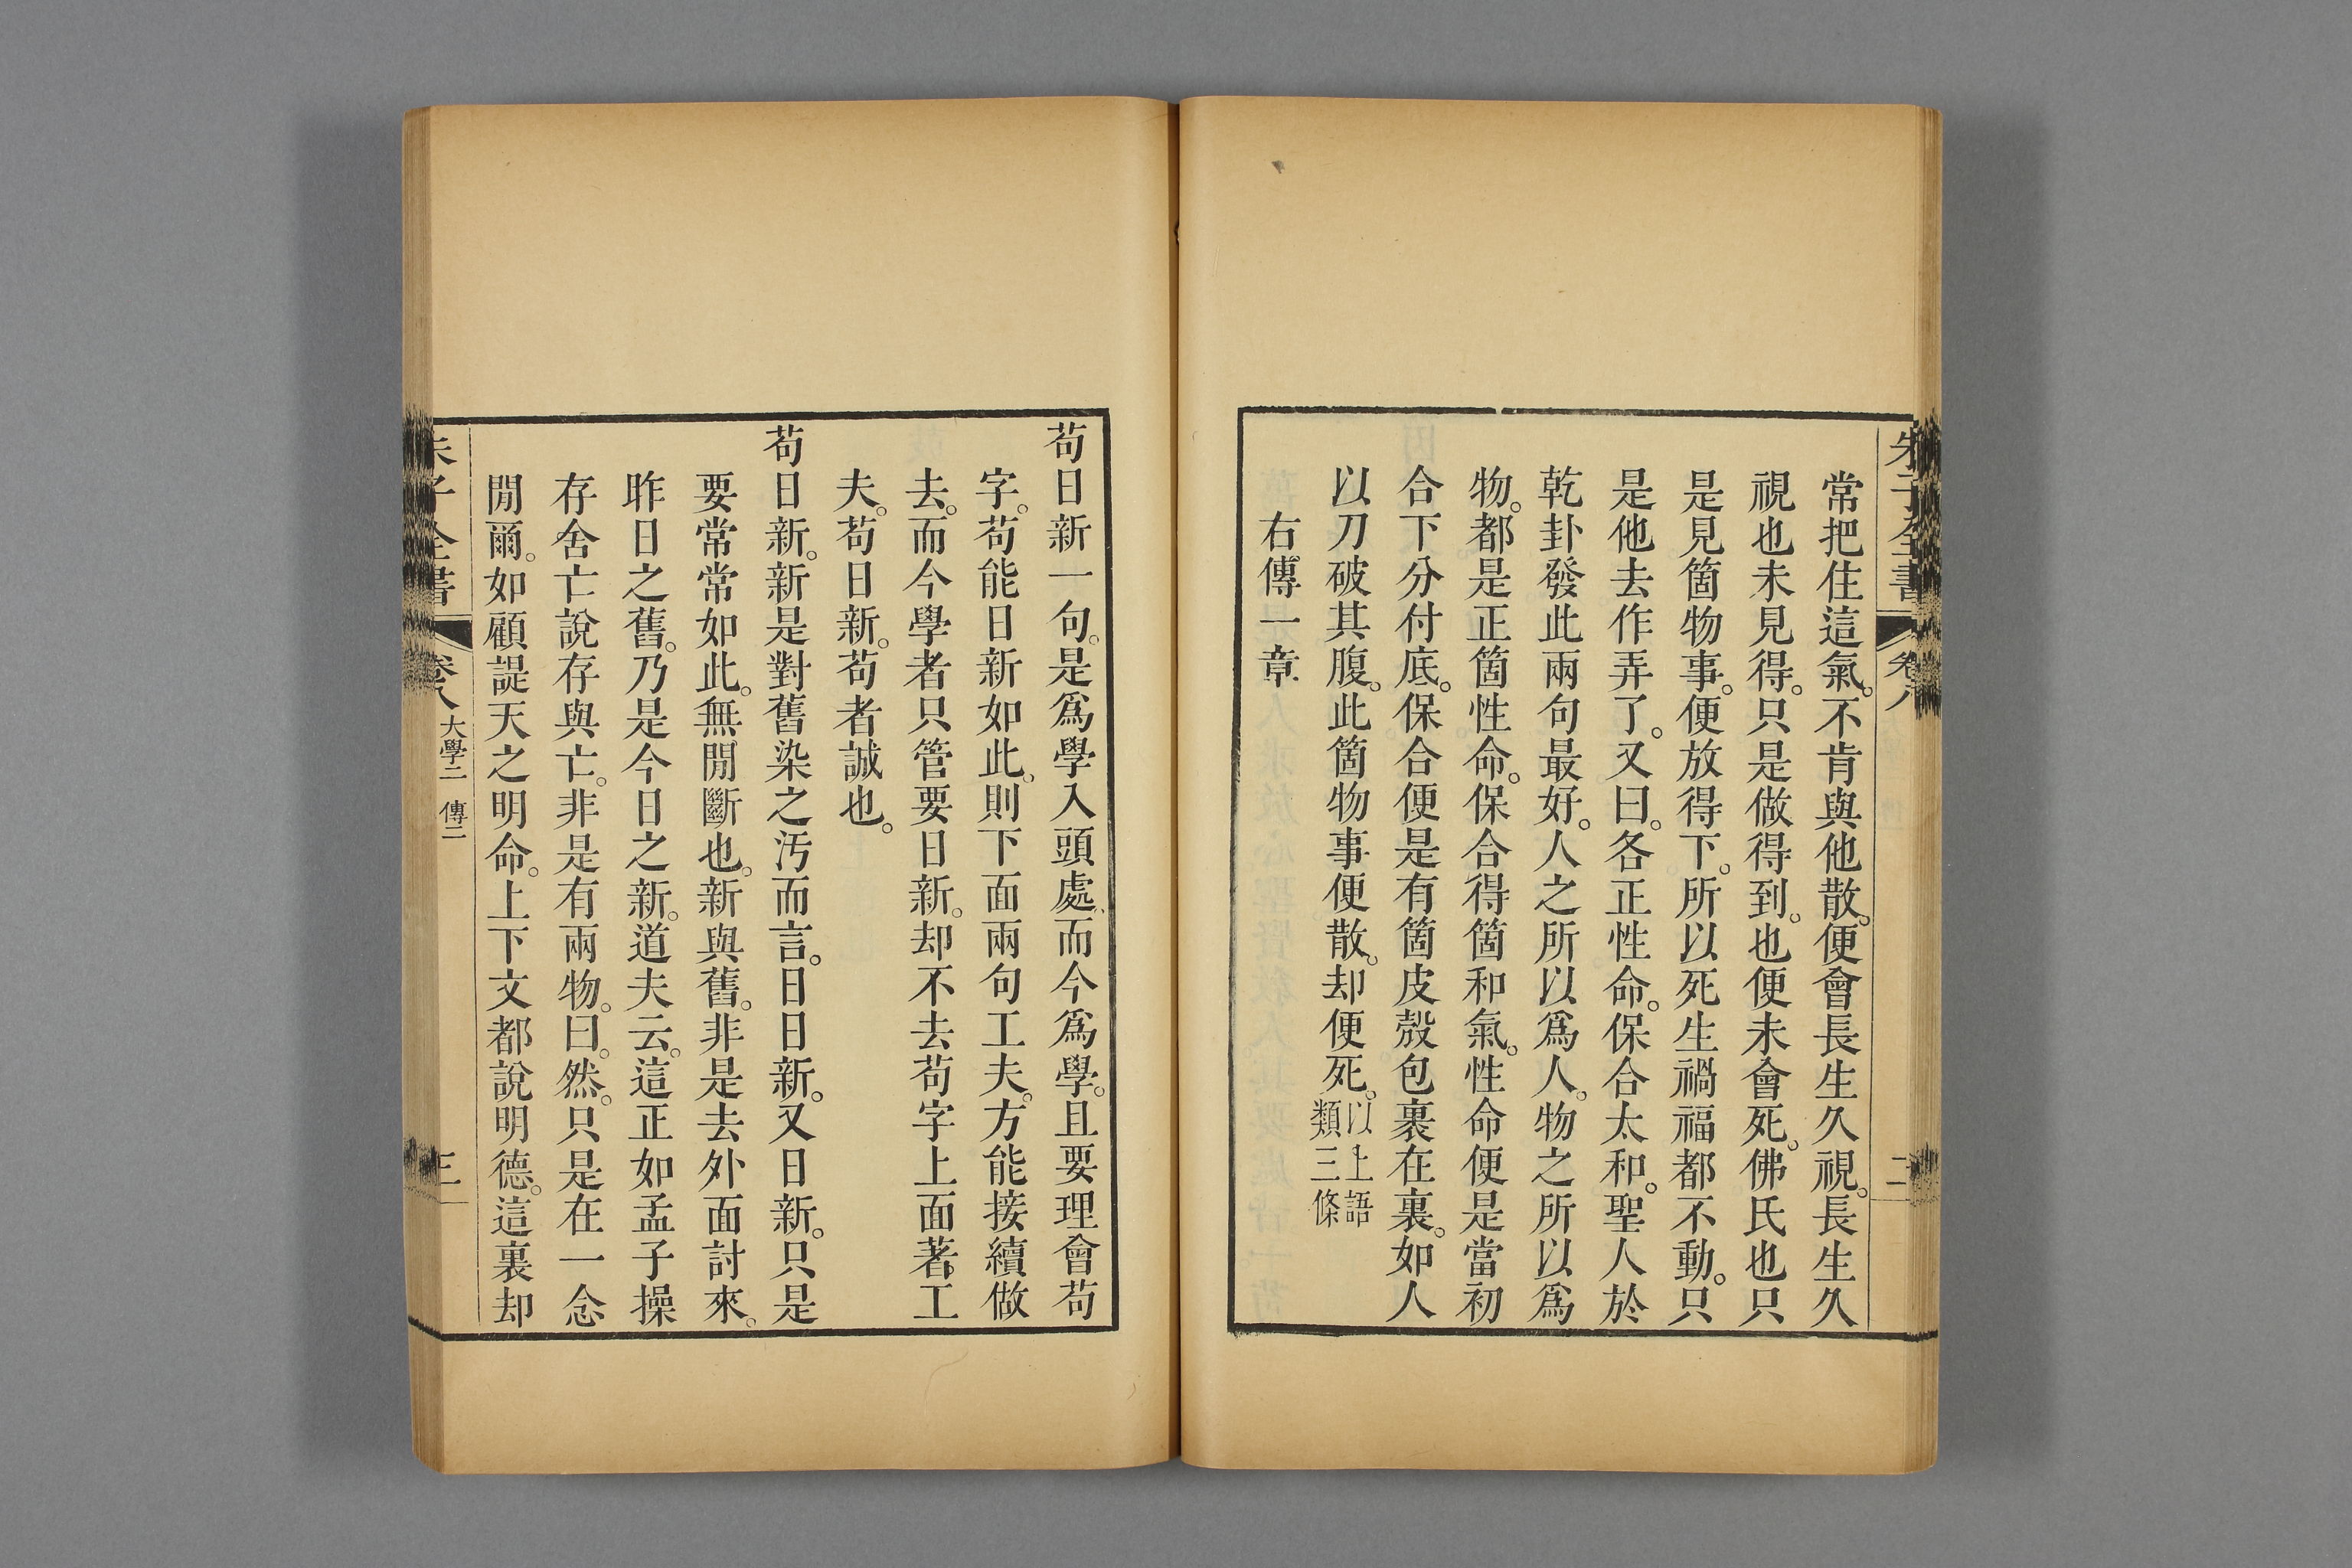 朱子全書 卷八 二
常把住這氣。不肯與他散。便會長生久視。長生久
視也未見得。只是做得到。也便未會死。佛氏也只
是見箇物事。便放得下。所以死生禍福都不動。只
是他去作弄了。又曰。各正性命。保合太和。聖人於
乾卦發此兩句最好。人之所以爲人。物之所以爲
物。都是正箇性命。保合得箇和氣。性命便是當初
合下分付底。保合便是有箇皮殼包裹在裏。如人
以刀破其腹。此箇物事便散。却便死。以上語
類三條
右傳一章
苟日新一句。是爲學入頭處。而今爲學。且要理會苟
字。苟能日新如此。則下面兩句工夫。方能接續做
去。而今學者只管要日新。却不去苟字上面著工
夫。苟日新。苟者誠也。
苟日新。新是對舊染之汚而言。日日新。又日新。只是
要常常如此。無閒斷也。新與舊。非是去外面討來。
昨日之舊。乃是今日之新。道夫云。這正如孟子操
存舍亡說存與亡。非是有兩物。曰。然。只是在一念
閒爾。如顧諟天之明命。上下文都說明德。這裏却
朱子全書 卷八 大學二 傳二 三